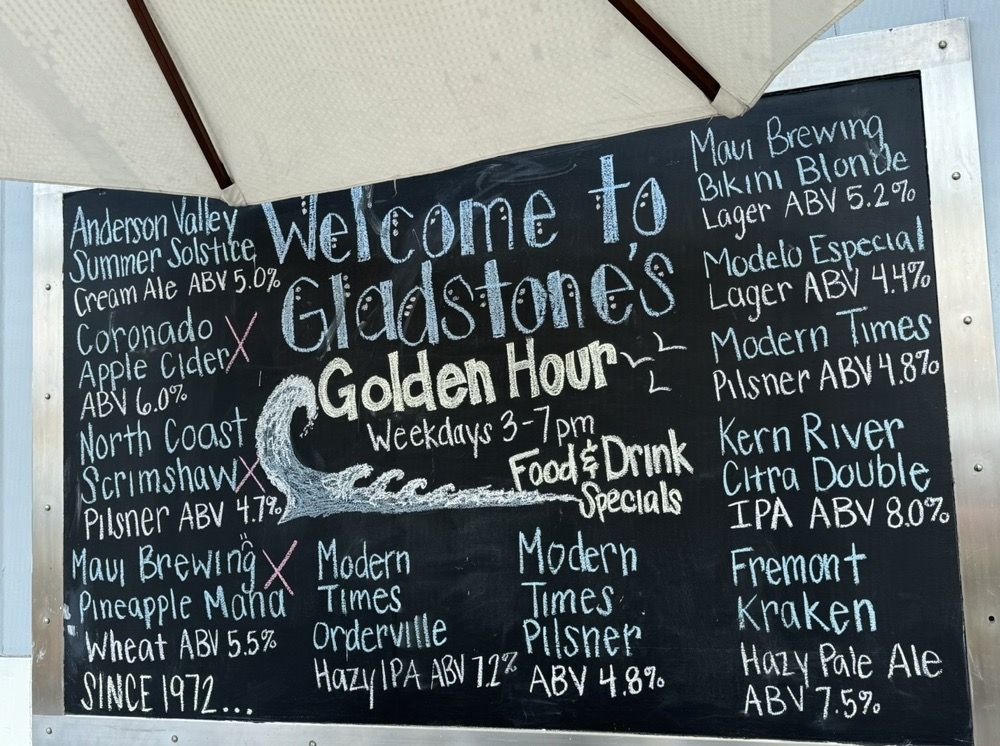 Anderson Valley
Summer Solstice
Cream Ale ABV 5.0%
Coronado
Apple Cider X
ABV 6.0%
North Coast
Scrimshaw X
Pilsner ABV 4.7%
Maui Brewing X
Pineapple Mana
Wheat ABV 5.5%
SINCE 1972...
Welcome to
Gladstone's
Golden Hour
Weekdays 3-7pm
Food & Drink
Specials
Modern
Times
Orderville
Hazy IPA ABV 7.2%
Modern
Times
Pilsner
ABV 4.8%
Maui Brewing
Bikini Blonde
Lager ABV 5.2%
Modelo Especial
Lager ABV 4.4%
Modern Times
Pilsner ABV 4.8%
Kern River
Citra Double
IPA ABV 8.0%
Fremont
Kraken
Hazy Pale Ale
ABV 7.5%